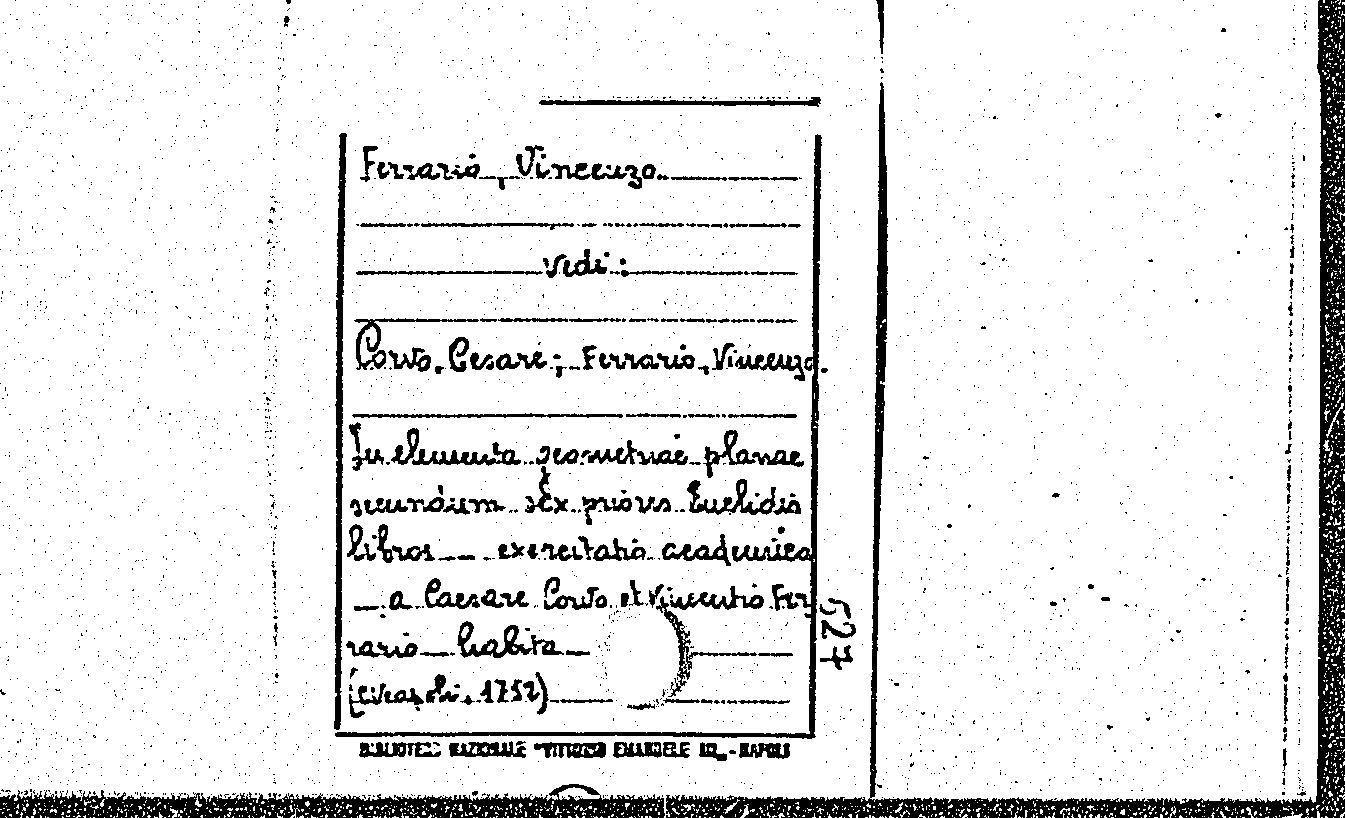 Ferrario, Vincenzo.
Vedi:
Corvo, Cesare; Ferrario, Vincenzo.
In elementa geometriae planae
secundum sex priores Euclidis
libros - exercitatio academica
- a Caesare Corvo et Vincentio Fer
rario - habita -
(Neapoli, 1752)
527
BIBLIOTECA NAZIONALE "VITTORIO EMANUELE III" - NAPOLI